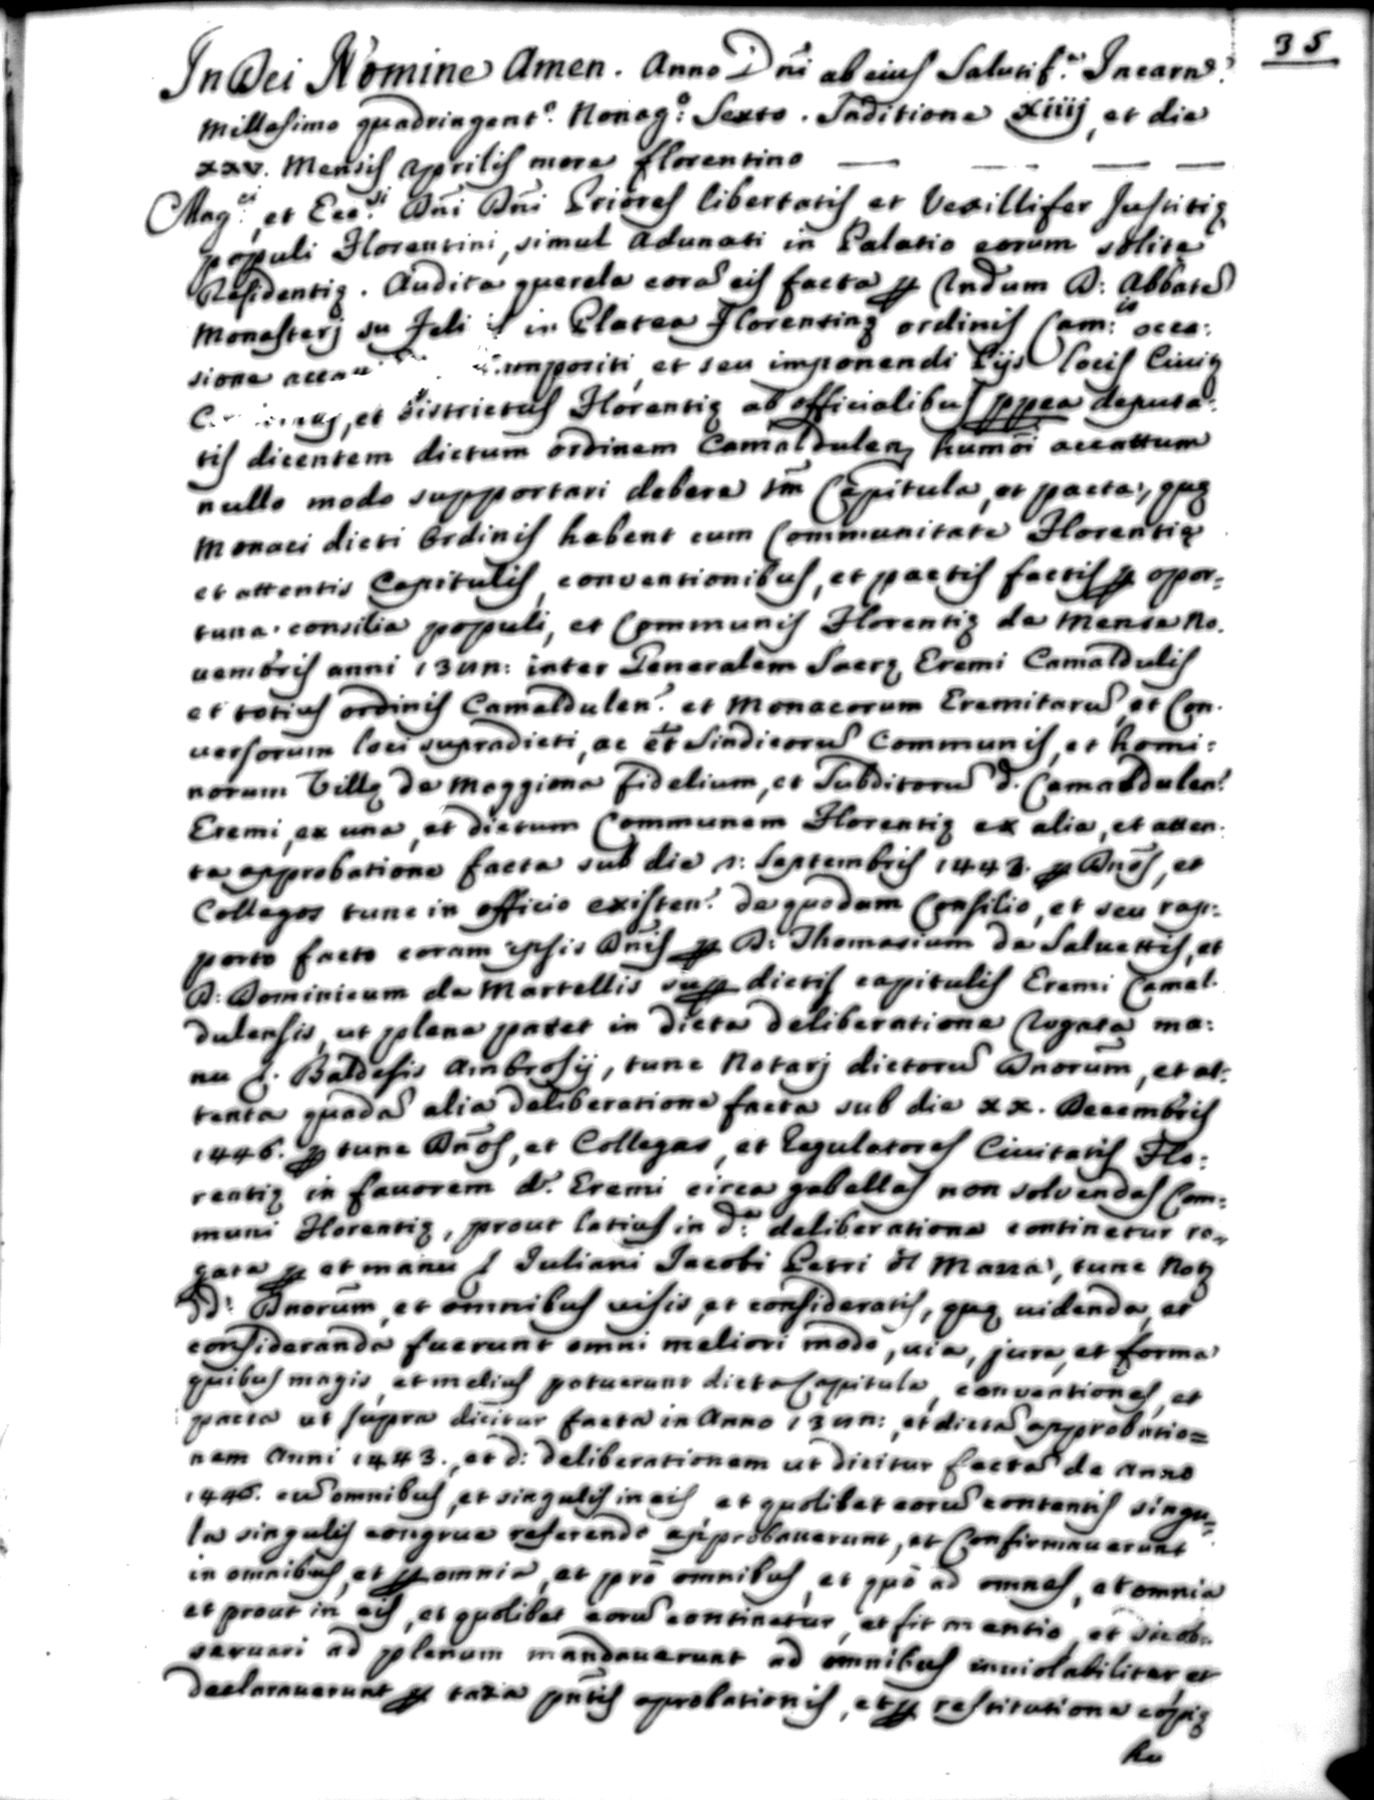 35
In Dei Nomine Amen. Anno Dni ab eius Salutif.a Incarn.e
Millesimo quadringent.o Nonag.o Sexto. Inditione xiiij, et die
xxv. Mensis Aprilis more florentino
Mag.ci, et Ecc.si Dñi Dñi Priores libertatis et Vexillifer Justitię
populi Florentini, simul adunati in Palatio eorum solite
Residentię. Audita querela corā eis facta p Rndum D: Abbatē
Monasterij in Platea Florentinę ordinis Cam:is occa:
sione impositi, et seu imponendi Pijs locis Civitę
et districtus Florentię ab officialibus ppea deputa:
tis dicentem dictum ordinem Camaldulen humōi accattum
nullo modo supportari debere Capitula, et pacta, quę
Monaci dicti Ordinis habent cum Communitate Florentię
et attentis Capitulis, conventionibus, et pactis factis p opor:
tuna consilia populi, et Communis Florentię de Mense No.
uembris anni inter Generalem Sacrę Eremi Camaldulis
et totius ordinis Camaldulen? et Monacorum Eremitarū, et Con.
uersorum loci supradicti, ac ēt Sindicorū Communis, et homi:
norum Villę de Moggiona fidelium, et Subditorū d. Camaldulen?
Eremi, ex una, et dictum Communem Florentię ex alia, et atten.
ta approbatione facta sub die Septembris 1443. p Dños, et
Collegas tunc in officio existen? de quodam Consilio, et seu rap:
porto facto coram ipsis Dñis p D: Thomasium de Saluettis, et
D: Dominicum de Martellis sup dictis capitulis Eremi Camal.
dulensis, ut plene patet in dicta deliberatione Rogata ma:
nu S. Baldesis Ambrosij, tunc Notarij dictorū Dnorūm, et at:
tenta quadā alia deliberatione facta sub die xx. Decembris
1446. p tunc Dños, et Collegas, et Regulatores Ciuitatis Flo:
rentię in fauorem d. Eremi circa gabellas non soluendas Com:
muni Florentię, prout latius in d.a deliberatione continetur ro=
gata p et manu S Iuliani Iacobi Petri Mazza, tunc Notę
D: Dnorūm, et omnibus uisis, et consideratis, quę uidenda, et
consideranda fuerunt omni meliori modo, uia, jure, et forma
quibus magis, et melius potuerunt dicta Capitula, conuentiones, et
pacta ut supra dicitur facta in Anno et dictā approbatio=
nem Anni 1443., et d: deliberationem ut dicitur factā de anno
1446. cū omnibus, et singulis in eis et quolibet eorū contentis singu=
la singulis congrue referendo approbauerunt, et Confirmauerunt
in omnibus, et p omnia, et prō omnibus, et quō ad omnes, et omnia
et prout in eis, et quolibet eorū continetur, et fit mentio, et sic ob:
seruari ad plenum mandauerunt ad omnibus inuiolabiliter, et
declarauerunt p taxa pñtis aprobationis, et p restitutione copię
hu